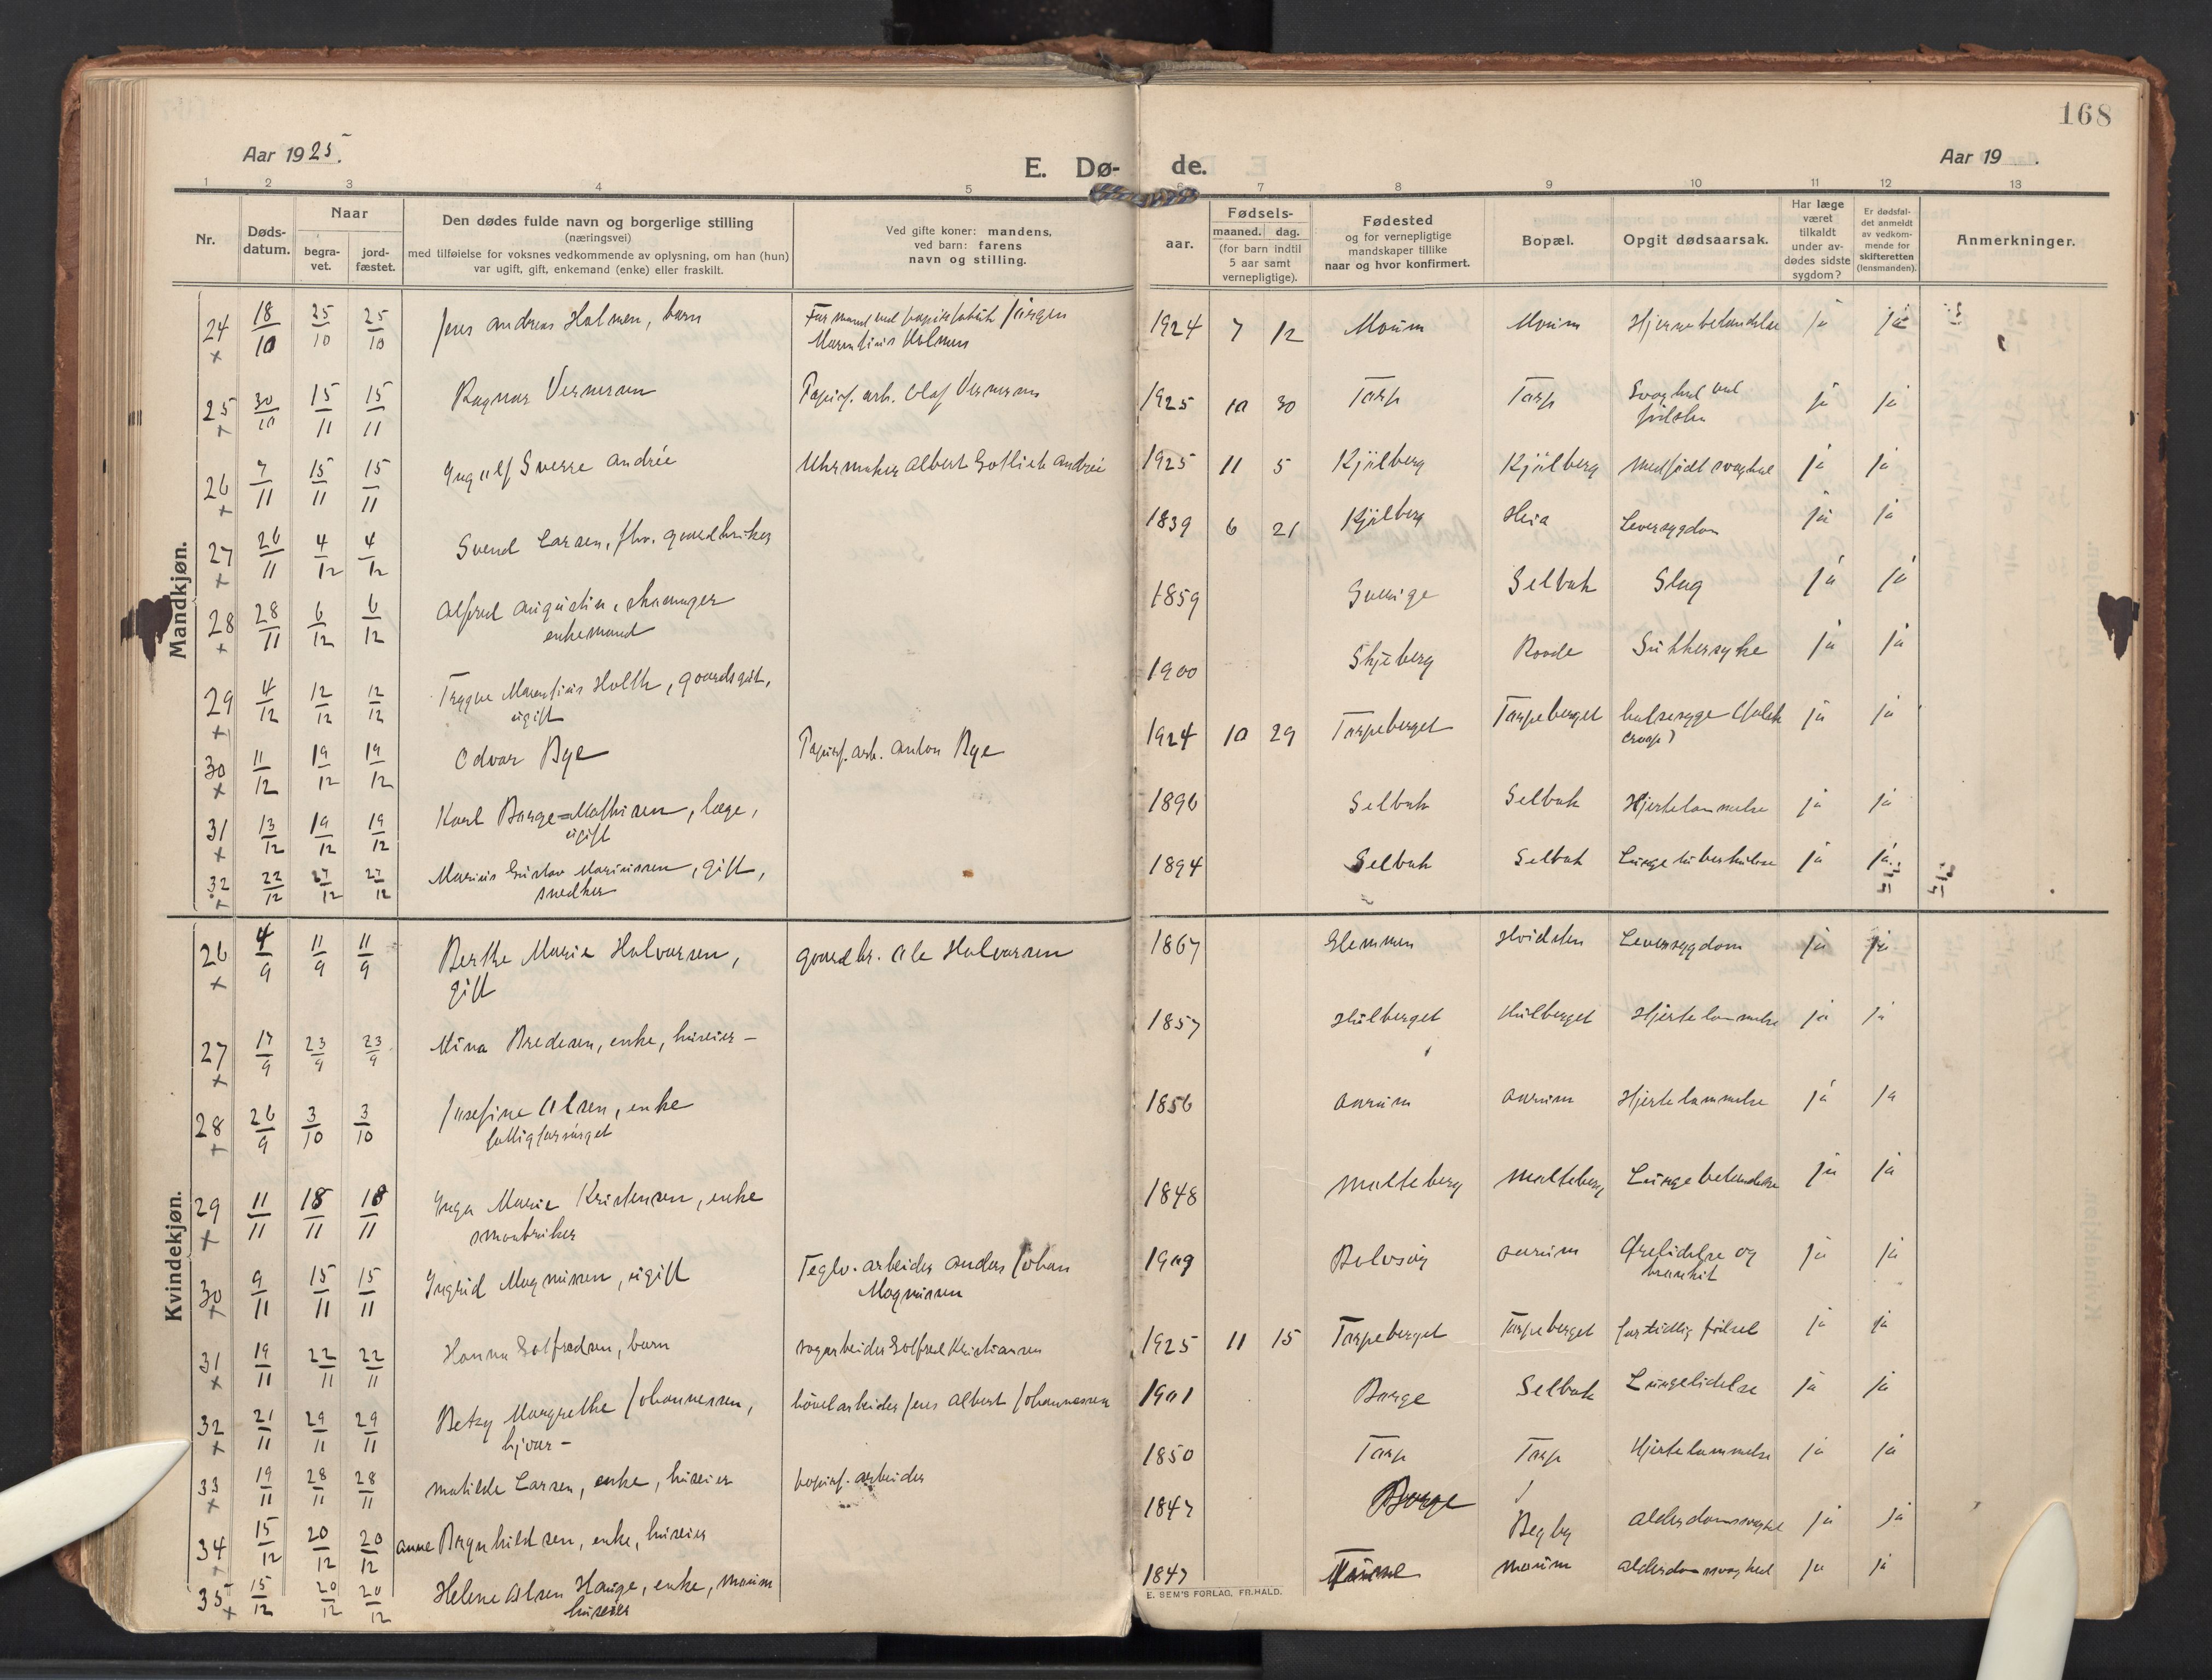 168
Aar 1925.
E. Dø- de.
Aar 19 .
1 2 3 4 5 6 7 8 9 10 11 12 13
Nr.
Døds-
datum.
Naar
begra-
vet.
jord-
fæstet.
Den dødes fulde navn og borgerlige stilling
(næringsvei)
med tilføielse for voksnes vedkommende av oplysning, om han (hun)
var ugift, gift, enkemand (enke) eller fraskilt.
Ved gifte koner: mandens,
ved barn: farens
navn og stilling.
Fødsels-
aar. maaned. dag.
(for barn indtil
5 aar samt
vernepligtige).
Fødested
og for vernepligtige
mandskaper tillike
naar og hvor konfirmert.
Bopæl.
Opgit dødsaarsak.
Har læge
været
tilkaldt
under av-
dødes sidste
sygdom?
Er dødsfal-
det anmeldt
av vedkom-
mende for
skifteretten
(lensmanden).
Anmerkninger.
Mandkjøn.
24 × 18/10 25/10 25/10 Jens Andreas Holmen, barn Jørgen 1924 7 12 Moum Moum Hjernebetændelse ja ja
Holmen
25 × 30/10 15/11 15/11 Ragnar Vernersen Papirf. arb. Olaf Vernersen 1925 10 30 Tarp Tarp Svaghed ved ja ja
fødslen
26 × 7/11 15/11 15/11 Ingulf Sverre Andrée Uhrmaker Albert Gotlieb Andrée 1925 11 5 Kjølberg Kjølberg Medfødt svaghed ja ja
27 × 26/11 4/12 4/12 Svend Larsen, fhv. gaardbruker 1839 6 21 Kjølberg Heia Leversygdom ja ja
28 × 28/11 6/12 6/12 Alfred Augustin, skomager 1859 Sverige Selbak Slag ja ja
enkemand
29 × 4/12 12/12 12/12 Trygve Marentius Holth, gaardsgut, 1900 Skjeberg Roode Sukkersyke ja ja
ugift
30 × 11/12 19/12 19/12 Odvar Bye Papirf. arb. Anton Bye 1924 10 29 Torpeberget Torpeberget halssyge (falsk ja ja
croup)
31 × 13/12 19/12 19/12 Karl Borge=Mathisen, læge, 1896 Selbak Selbak Hjertelammelse ja ja
ugift
32 × 22/12 27/12 27/12 Marius Gustav Mariussen, gift, 1894 Selbak Selbak Lungetuberkulose ja ja
snedker
Kvindekjøn.
26 × 4/9 11/9 11/9 Berthe Marie Halvorsen, gaardbr. Ole Halvorsen 1867 Glemmen Hvidsten Leversygdom ja ja
gift
27 × 17/9 23/9 23/9 Mina Bredesen, enke, huseier – 1857 Hulberget Hulberget Hjertelammelse ja ja
28 × 26/9 3/10 3/10 Josefine Olsen, enke 1856 Aarum Aarum Hjertelammelse ja ja
fattigforsørget
29 × 11/11 18/11 18/11 Inga Marie Kristensen, enke 1848 Molteberg Molteberg Lungebetændelse ja ja
smaabruker
30 × 9/11 15/11 15/11 Ingrid Magnussen, ugift Teglv. arbeider Anders Johan 1909 Aarum Ørelidelse og ja ja
Magnussen bronkit
31 × 19/11 22/11 22/11 Hanna Golfredsen, barn sagarbeider Golfred Kristiansen 1925 11 15 Torpeberget Torpeberget for tidlig fødsel ja ja
32 × 21/11 29/11 29/11 Betzy Margrethe Johannessen, høvelarbeider Jens Albert Johannessen 1901 Borge Selbak Lungelidelse ja ja
hjvar –
33 × 19/11 28/11 28/11 Matilde Larsen, enke, huseier papirf. arbeider 1850 Tarp Tarp Hjertelammelse ja ja
34 × 15/12 20/12 20/12 Anne Brynhildsen, enke, huseier 1847 Borge Begby Alderdomssvaghed ja ja
35 × 15/12 20/12 20/12 Helene Olsen Hauge, enke, Moum 1847 Moum Alderdomssvaghed ja ja
huseier
E. SEM'S FORLAG, FR.HALD.